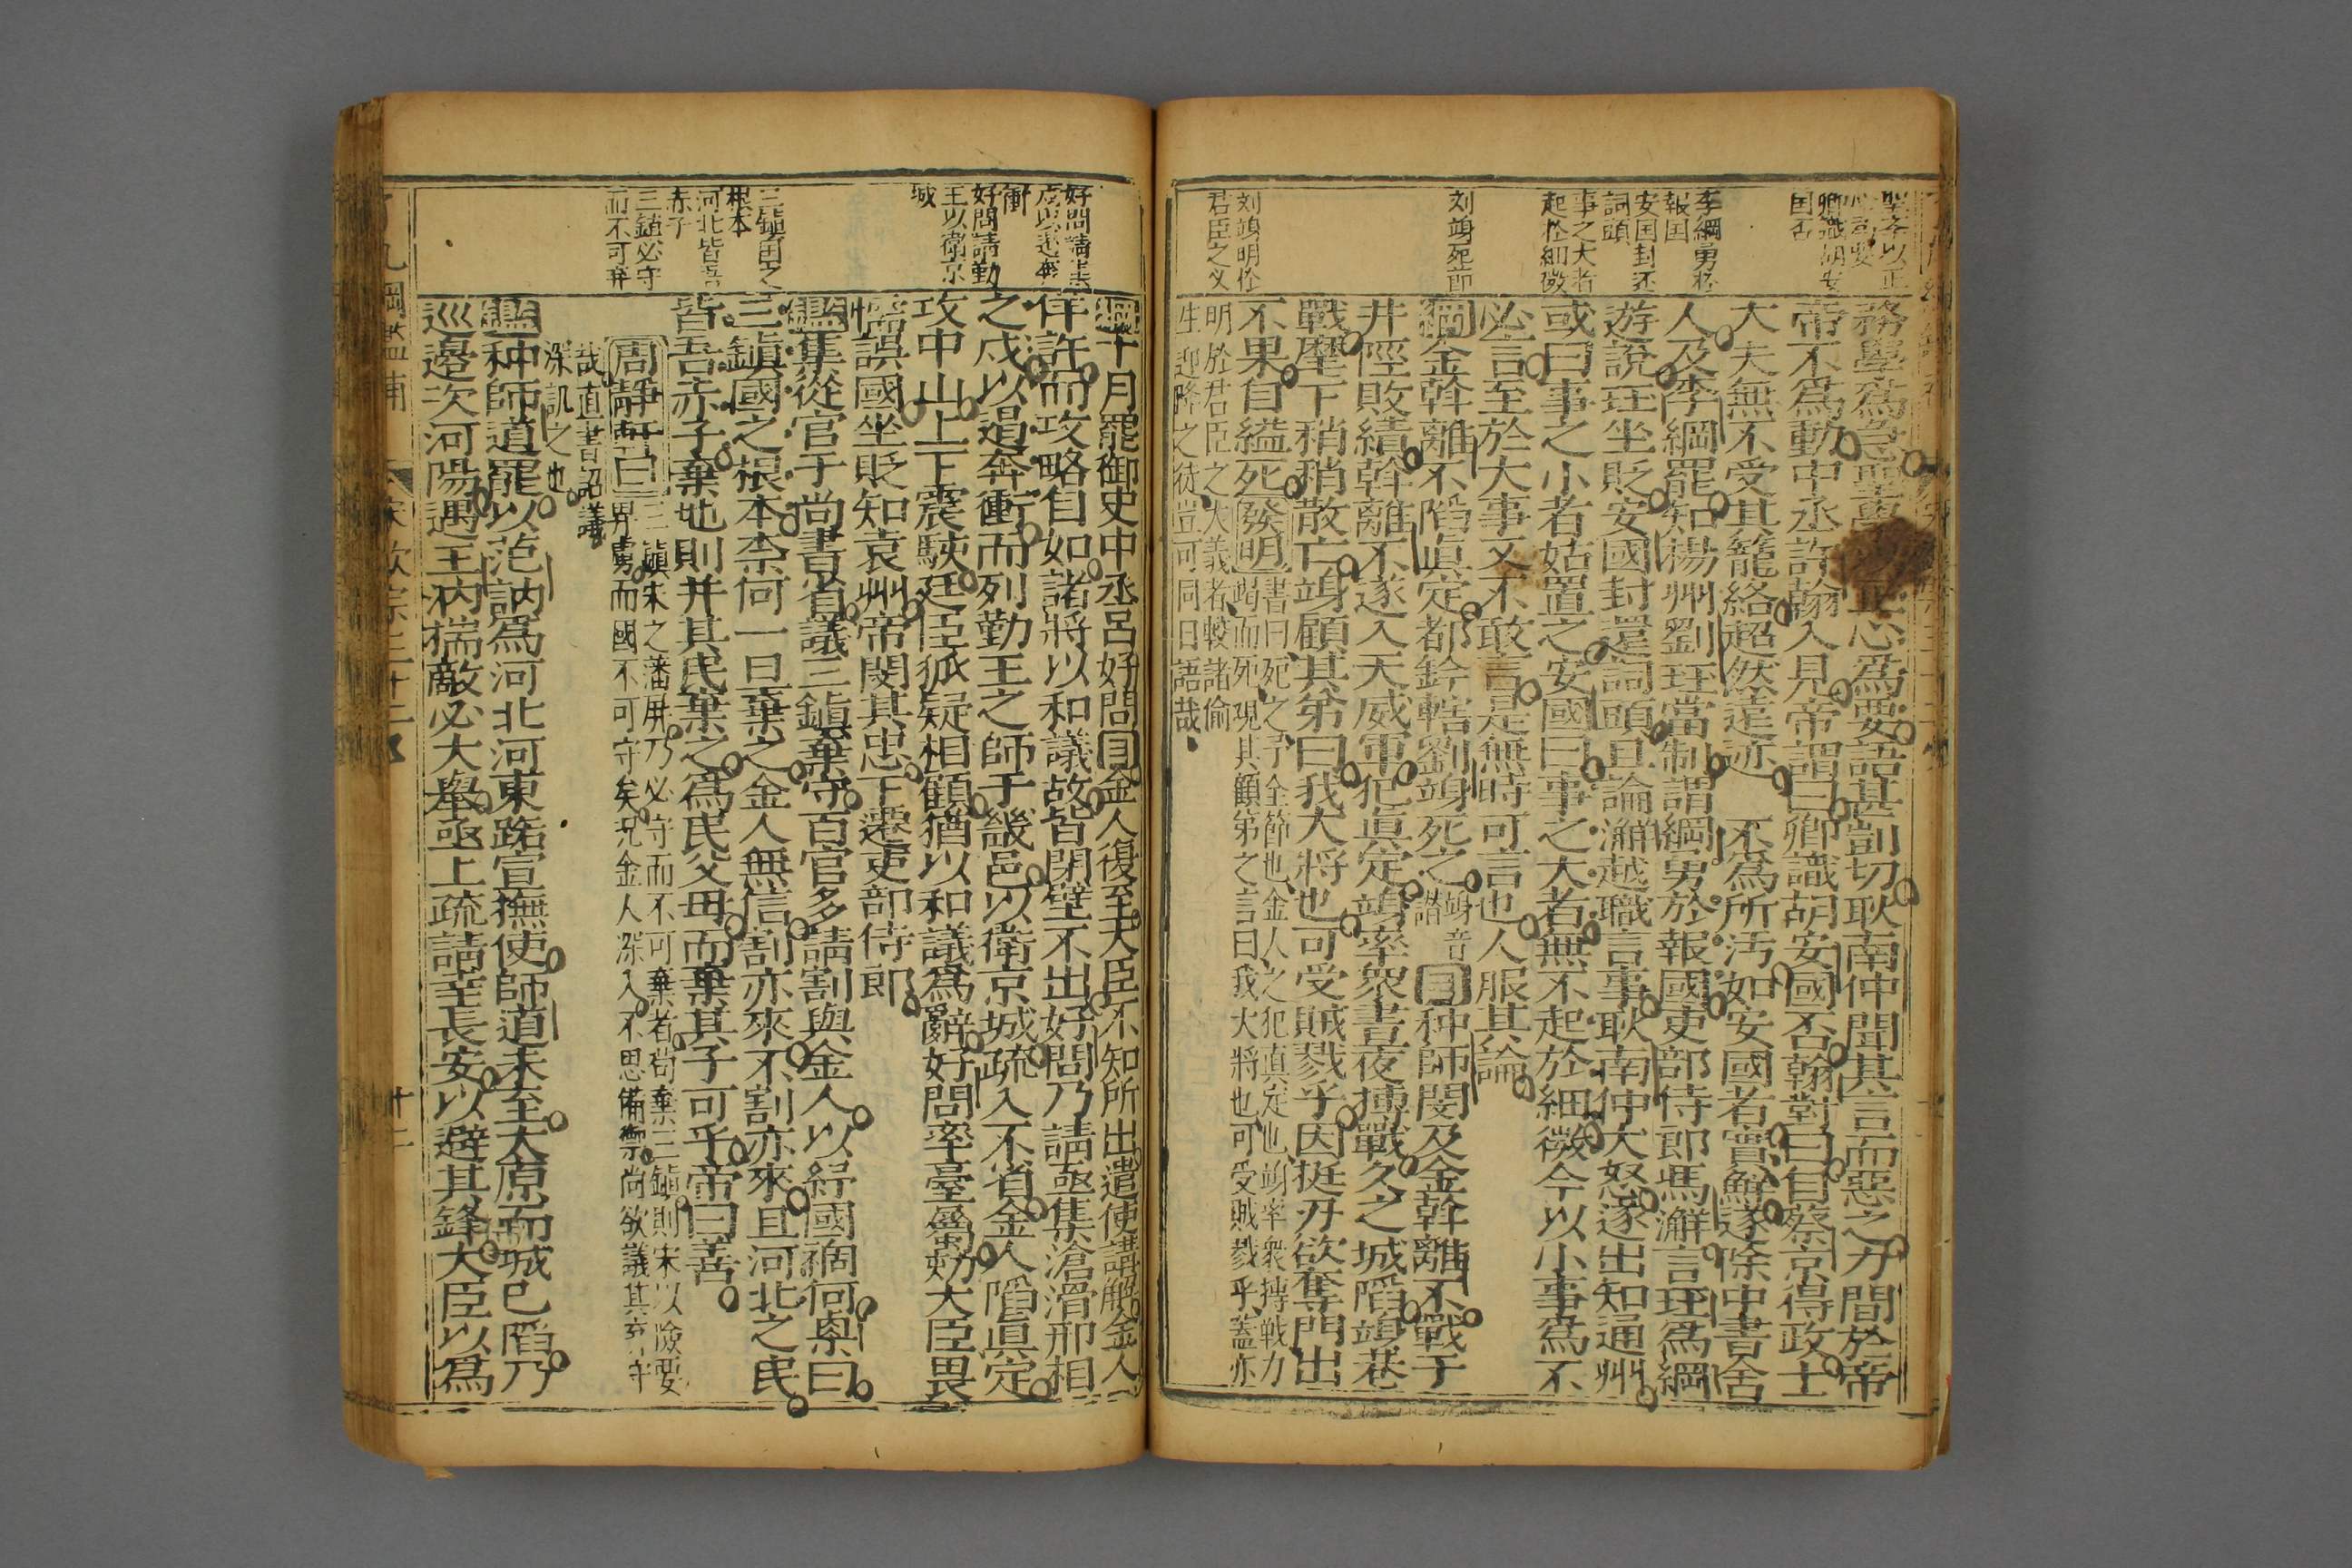 務學爲急聖萬以正心爲要語甚剴切耿南仲聞其言而惡之力間於帝
帝不爲動中丞許翰入見帝謂曰卿識胡安國否翰對曰自蔡京得政士
大夫無不受其籠絡超然遠迹不爲所汚如安國者實鮮遂除中書舍
人及李綱罷知楊州劉珏當制謂綱勇於報國吏部侍郎馮澥言珏爲綱
遊說珏坐貶安國封還詞頭且論澥越職言事耿南仲大怒遂出知通州
或曰事之小者姑置之安國曰事之大者無不起於細微今以小事爲不
必言至於大事又不敢言是無時可言也人服其論
綱金斡離不陷眞定都鈐轄劉竧死之
竧音
譛
目种師閔及金斡離不戰于
井陘敗績斡離不遂入天威軍犯眞定竧率衆晝夜搏戰久之城陷竧巷
戰麾下稍稍散亡竧顧其弟曰我大將也可受賊戮乎因挺刃欲奪門出
不果自縊死
發明
書曰死之予全節也金人之犯真定也竧率衆搏戰力
竭而死覌其顧第之言曰我大將也可受賊戮乎蓋亦
明於君臣之大義者較諸偷
生迎降之徒豈可同日語哉
聖學以正
心爲要
卿識胡安
囯否
李綱勇於
報囯
安囯封还
詞頭
事之大者
起於細微
刘竧死節
刘竧明於
君臣之义
綱十月罷御史中丞呂好問目金人復至大臣不知所出遣使講解金人
佯許而攻略自如諸將以和議故皆閉壁不出好問乃請亟集滄滑邢相
之戍以遏奔衝而列勤王之師于畿邑以衛京城疏入不省金人陷眞定
攻中山上下震駭廷臣狐疑相顧猶以和議爲辭好問率臺屬劾大臣畏
懦誤國坐貶知袁州帝閔其忠下遷吏部侍郎
鑑集從官于尚書省議三鎮棄守百官多請割與金人以紓國禍何㮚曰
三鎮國之根本柰何一旦棄之金人無信割亦來不割亦來且河北之民
皆吾赤子棄地則并其民棄之爲民父母而棄其子可乎帝曰善
周靜軒曰
三鎮宋之藩屏乃必守而不可棄者苟棄三鎮則宋以險要
畀虜而國不可守矣况金人深入不思備禦尚欲議其弃守
哉直書詔議
深譏之也
鑑种師道罷以范訥爲河北河東路宣撫使師道未至太原而城已陷乃
巡邊次河陽遇王汭揣敵必大舉亟上疏請幸長安以避其鋒大臣以爲
好問請集
戍以遏奔
衝
好問請勤
王以衛京
城
三鎮囯之
根本
河北皆吾
赤子
三鎮必守
而不可弃
宋欽宗
十二